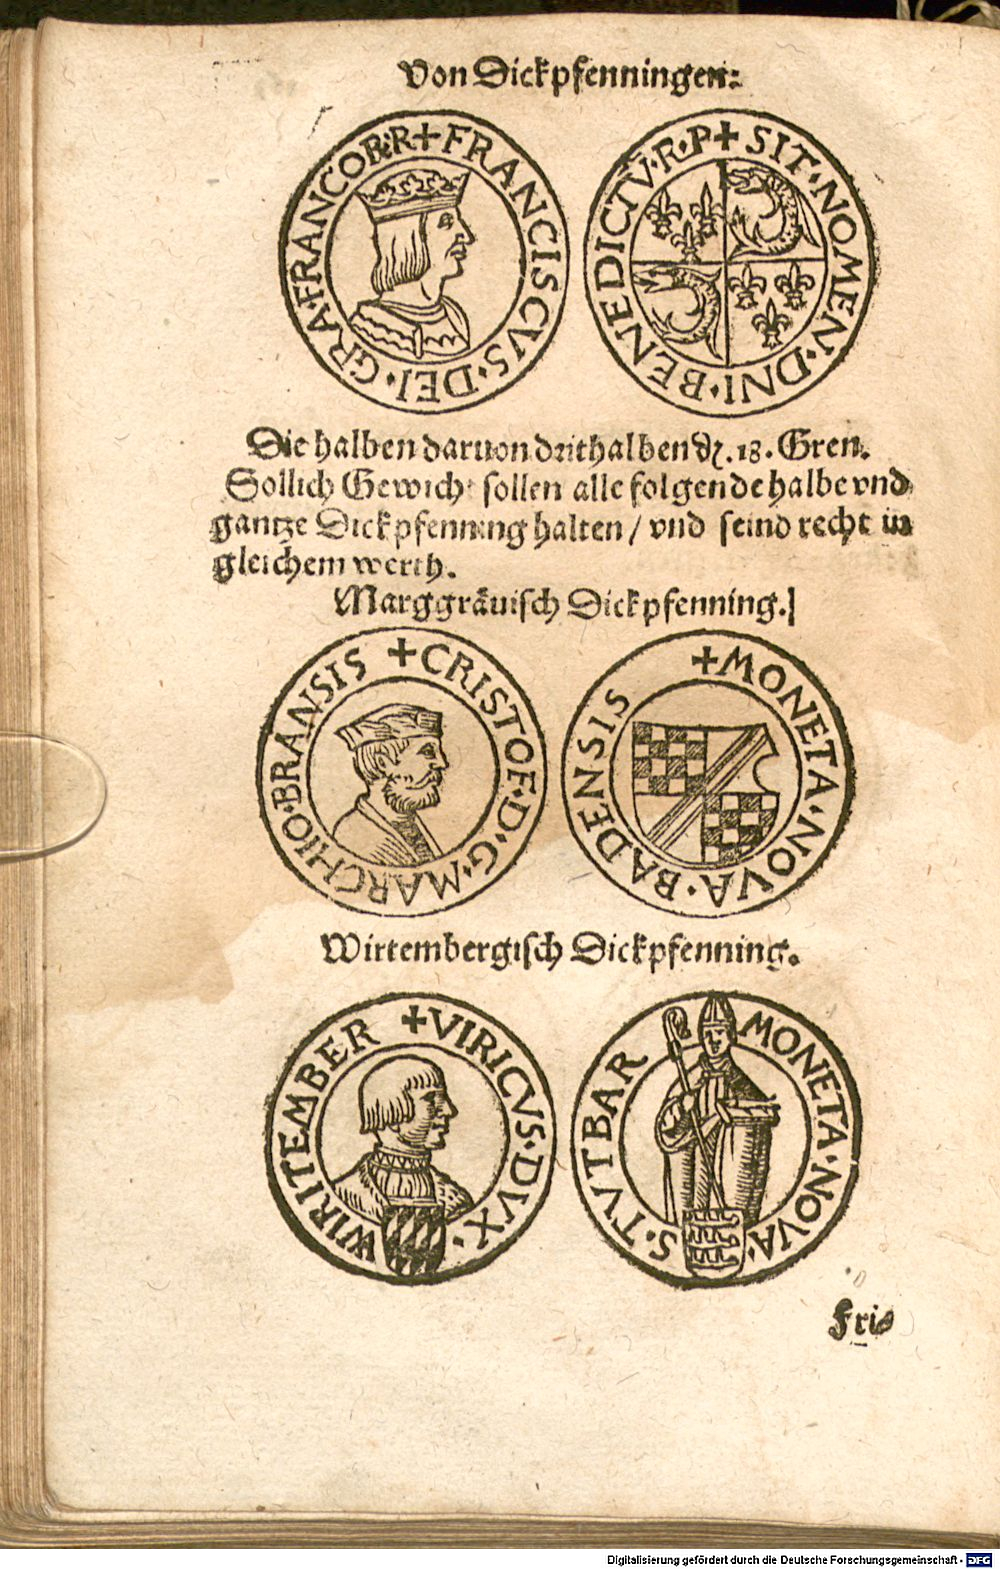 Von Dickpfenningen:
✝FRANCISCVS·DEI·GRA·FRANCOR:R
✝SIT·NOMEN·DNI·BENEDICTV·R·P
Die halben daruon drithalben .18. Gren.
Sollich Gewicht sollen alle folgende halbe vnd
gantze Dickpfenning halten / vnd seind recht in
gleichem werth.
Marggräuisch Dickpfenning.
✝CRISTOF·D·G·MARCHIO·BRANSIS
✝MONETA·NOVA·BADENSIS
Wirtembergisch Dickpfenning.
✝VIRICVS·DVX·WIRITEMBER
MONETA·NOVA·S·TVTBAR
Fris
Digitalisierung gefördert durch die Deutsche Forschungsgemeinschaft - DFG